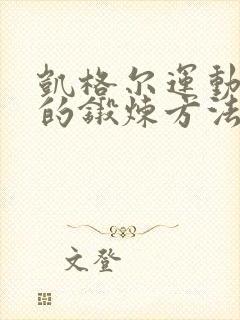 凱格尔運動
的鍛煉方法
文登